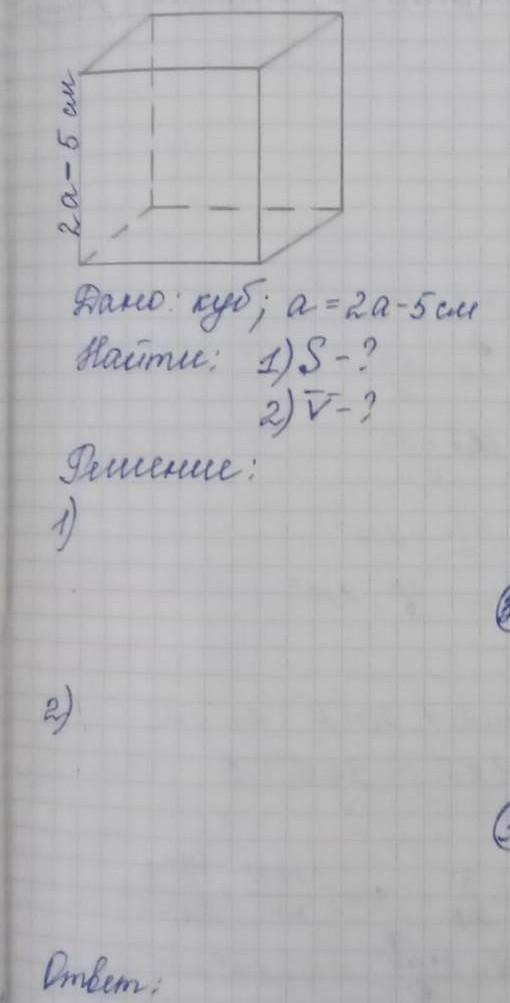 2a - 5 см
Дано: куб; a = 2a - 5 см
Найти: 1) S - ?
2) V - ?
Решение:
1)
2)
Ответ: